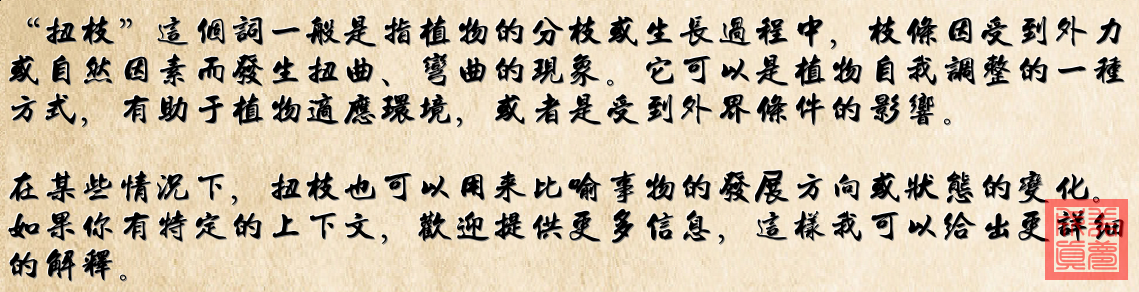 “扭枝”這個詞一般是指植物的分枝或生長過程中，枝條因受到外力
或自然因素而發生扭曲、彎曲的現象。它可以是植物自我調整的一種
方式，有助于植物適應環境，或者是受到外界條件的影響。
在某些情況下，扭枝也可以用來比喻事物的發展方向或狀態的變化。
如果你有特定的上下文，歡迎提供更多信息，這樣我可以給出更詳細
的解釋。